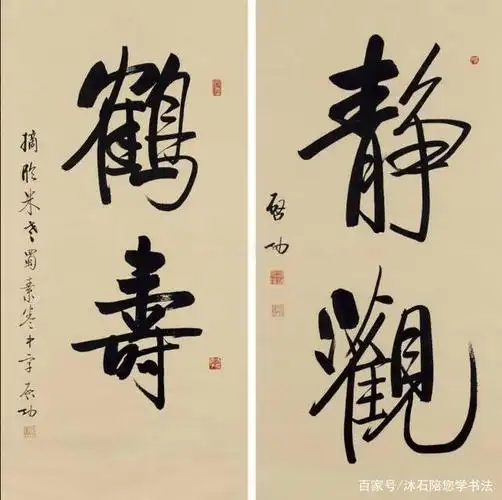 静觀
啓功
鶴壽
摘臨米老蜀素卷中字 啓功
百家号/沐石陪您学书法